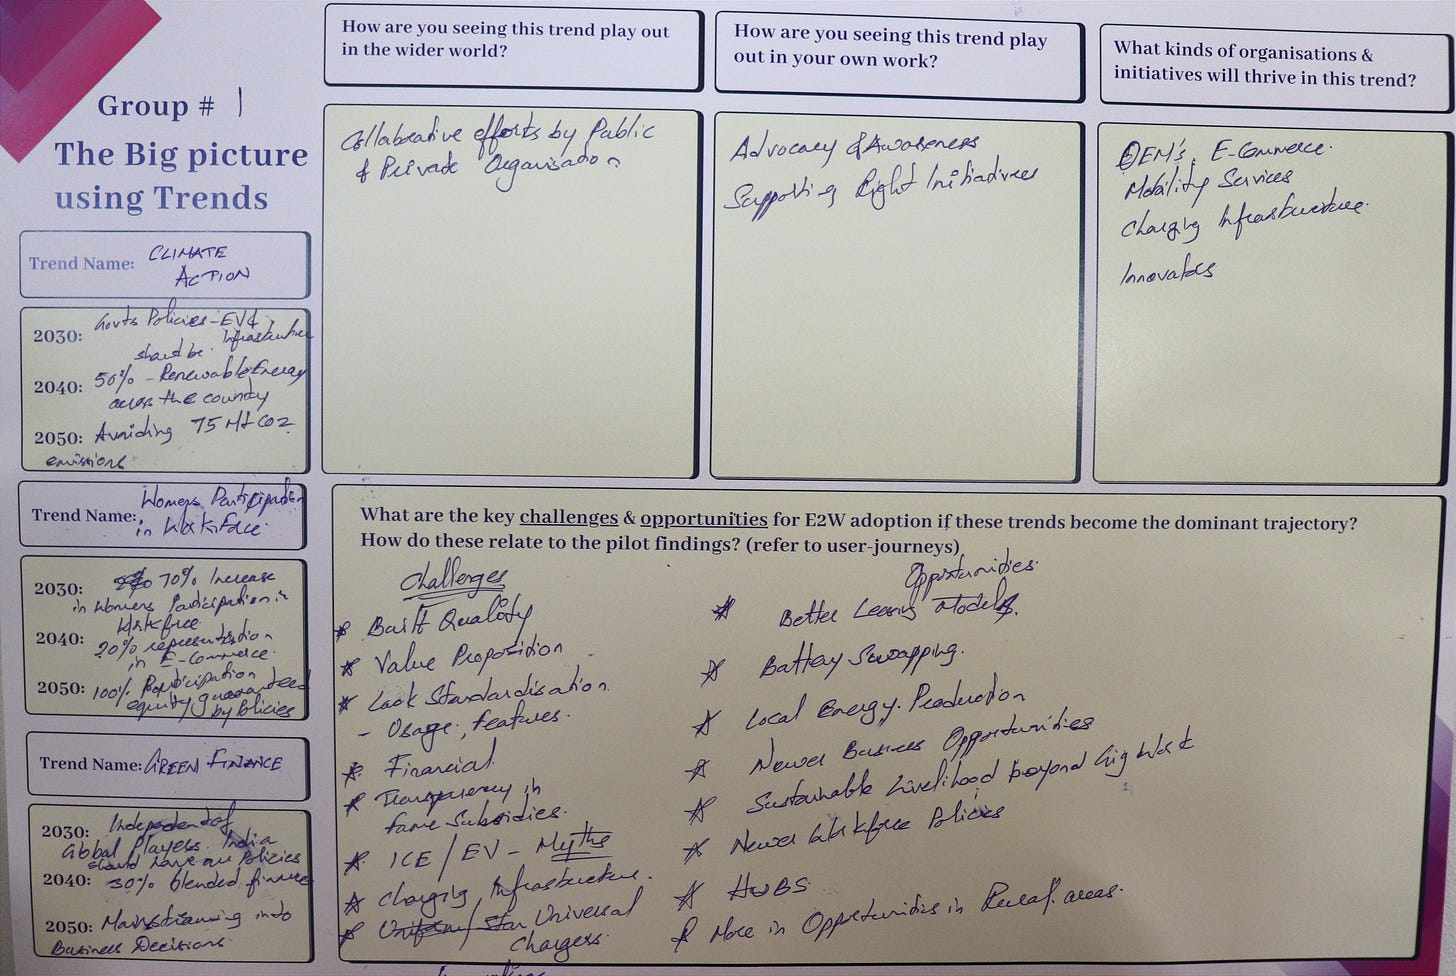 Group # 1
The Big picture
using Trends
How are you seeing this trend play out
in the wider world?
Collaborative efforts by Public
& Private Organisation
How are you seeing this trend play
out in your own work?
Advocacy & Awareness
Supporting Right Initiatives
What kinds of organisations &
initiatives will thrive in this trend?
OEM's, E-Commerce.
Mobility Services
Charging Infrastructure.
Innovators
Trend Name: CLIMATE
ACTION
2030: Govts Policies - EV &
Infrastructure
should be.
2040: 50% - Renewable Energy
across the country
2050: Avoiding 75 Mt CO2
emissions
Trend Name: Womens Participation
in Workforce.
2030: 70% Increase
in Womens Participation in
Workforce
2040: 20% representation
in E-Commerce.
2050: 100% Participation
equity guaranteed
by Policies
Trend Name: GREEN FINANCE
2030: Independent of
Global Players. India
should have own Policies
2040: 30% blended finance
2050: Mainstreaming into
Business Decisions.
What are the key challenges & opportunities for E2W adoption if these trends become the dominant trajectory?
How do these relate to the pilot findings? (refer to user-journeys)
Challenges
* Built Quality
* Value Proposition
* Lack Standardisation
- Usage, features.
* Financial
* Transparency in
fame Subsidies.
* ICE / EV - Myths
* Charging Infrastructure.
* Uniform / Stan Universal
Chargers.
Opportunities
* Better Leasing Models.
* Battery Swapping.
* Local Energy Production
* Newer Business Opportunities
* Sustainable Livelihood beyond Gig Work
* Newer Workforce Policies
* HUBS
* More in Opportunities in Rural areas.